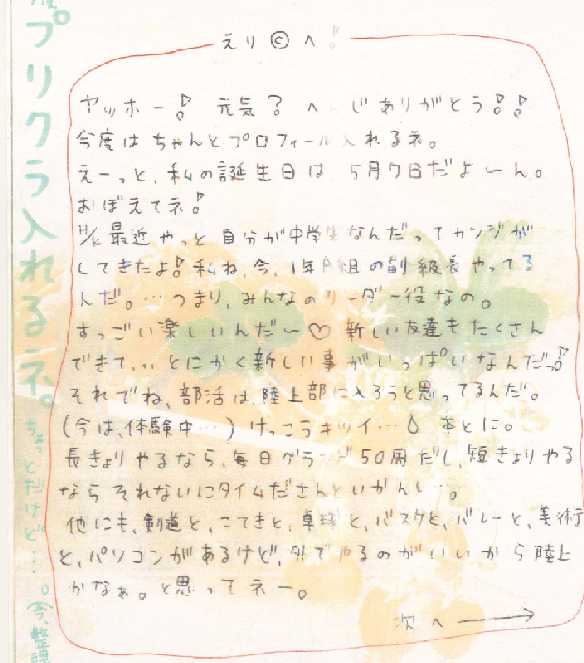 えり©へ!
ヤッホー! 元気? へんじありがとう!!
今度はちゃんとプロフィール入れるネ。
えーっと、私の誕生日は、5月7日だよーん。
おぼえてネ!
最近やっと自分が中学生なんだってカンジが
してきたよ!私ね、今、1年 組の副級長やってる
んだ。…つまり、みんなのリーダー役なの。
すっごい楽しいんだ〜♡ 新しい友達もたくさん
できて、、、とにかく新しい事がいっぱいなんだっ!
それでね、部活は、陸上部に入ろうと思ってるんだ。
(今は、体験中…)けっこうキツイ… 本とに。
長きょりやるなら、毎日グランド50周だし、短きょりやる
ならそれないにタイムださんといかんし…。
他にも、剣道と、こてきと、卓球と、バスケと、バレーと、美術
と、パソコンがあるけど、外でやるのがいいから陸上
かなぁ。と思ってネー。
次へ→
プリクラ入れるネ。ちょっとだけど…。